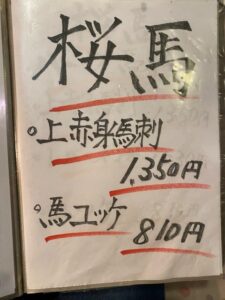 桜馬
。上赤身馬刺
1,350円
。馬ユッケ
810円